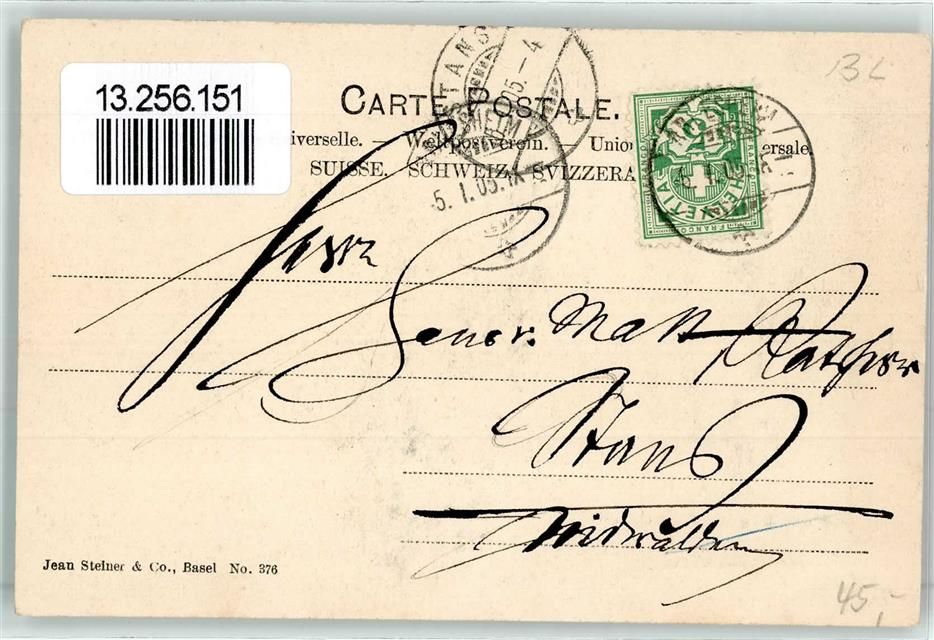 13.256.151
CARTE POSTALE.
iverselle. — Weltpostverein. — Unio ersale.
SUISSE. SCHWEIZ. SVIZZERA
STANS
05. - 4
HELVETIA
FRANCO
5. I. 05. IX
Herrn
Matt
Stans
Nidwalden
Jean Steiner & Co., Basel No. 376
BL
45,-